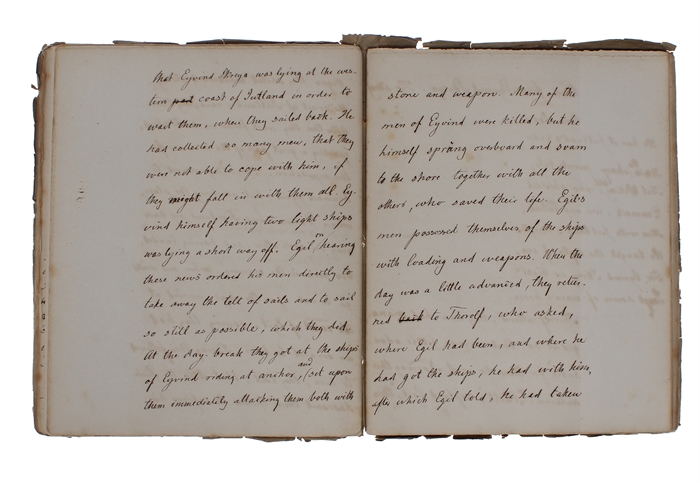 that Eyvind Skreya was lying at the wes-
tern part coast of Jutland in order to
wait them, when they sailed back. He
had collected so many men, that they
were not able to cope with him, if
they might fall in with them all. Ey-
vind himself having two light ships
was lying a short way off. Egil on hearing
these news ordered his men directly to
take away the telt of sails and to sail
so still as possible, which they did.
At the day-break they got at the ships
of Eyvind riding at anchor, and set upon
them immediatily attacking them both with
stone and weapon. Many of the
men of Eyvind were killed, but he
himself sprang overboard and svam
to the shore together with all the
others, who saved their life. Egil's
men possessed themselves of the ships
with loading and weapons. When the
day was a little advanced, they retur-
ned back to Thorolf, who asked,
where Egil had been, and where he
had got the ships, he had with him,
after which Egil told, he had taken